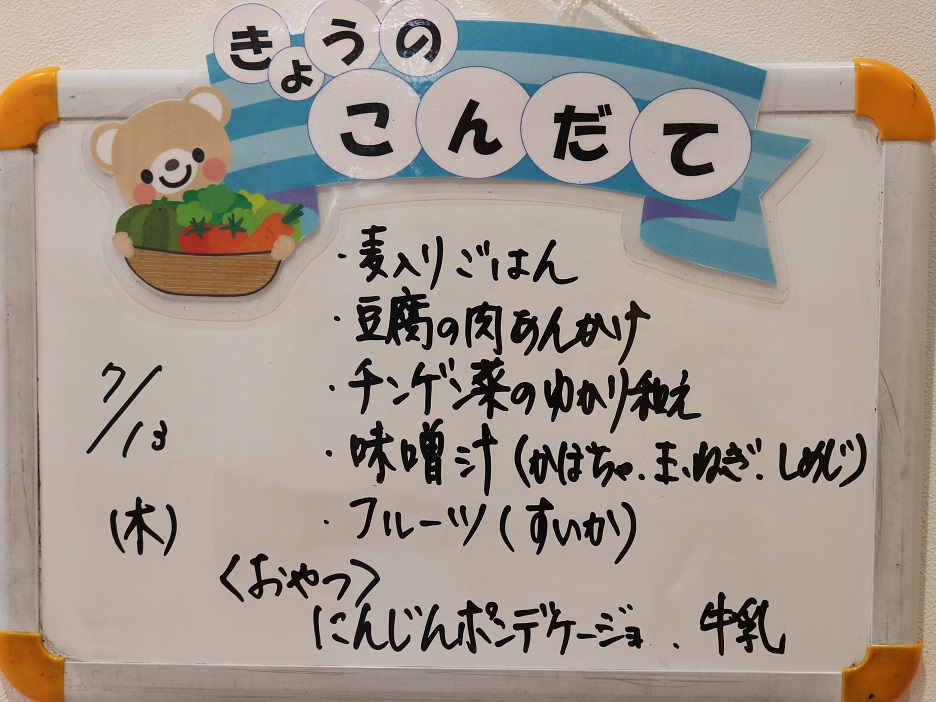 きょうの
こんだて
・麦入りごはん
・豆腐の肉あんかけ
・チンゲン菜のゆかり和え
7/13
・味噌汁(かぼちゃ.玉ねぎ.しめじ)
(木)
・フルーツ(すいか)
<おやつ>
にんじんポンデケージョ.牛乳